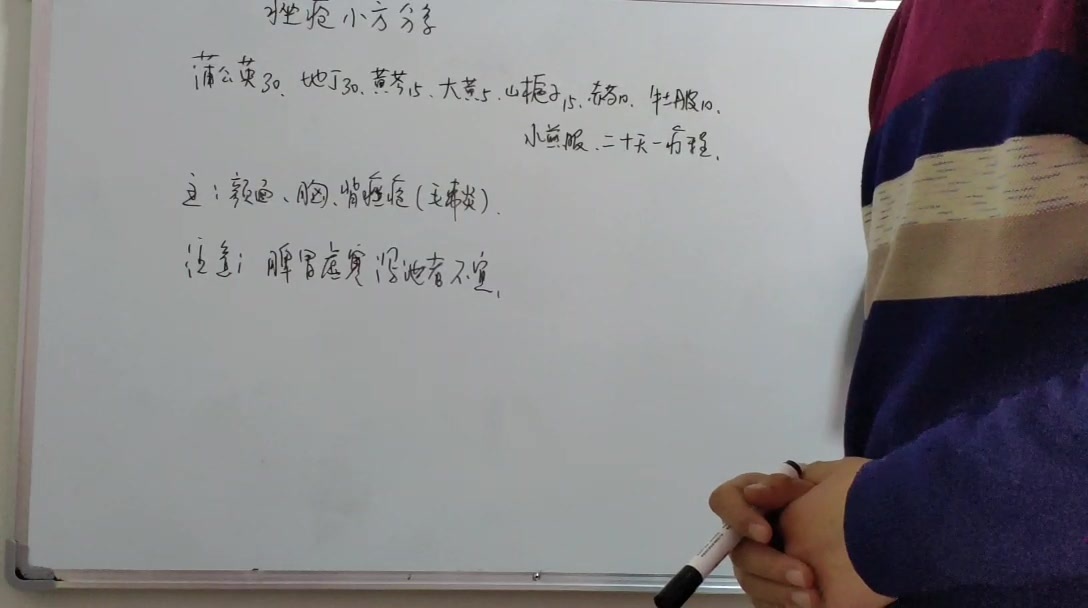 痤疮小方分享
蒲公英30、地丁30、黄芩15、大黄5、山栀子15、赤芍10、牡皮10、
水煎服、二十天一疗程。
主：颜面、胸、背痤疮（毛囊炎）.
注意：脾胃虚寒泻泄者不宜.